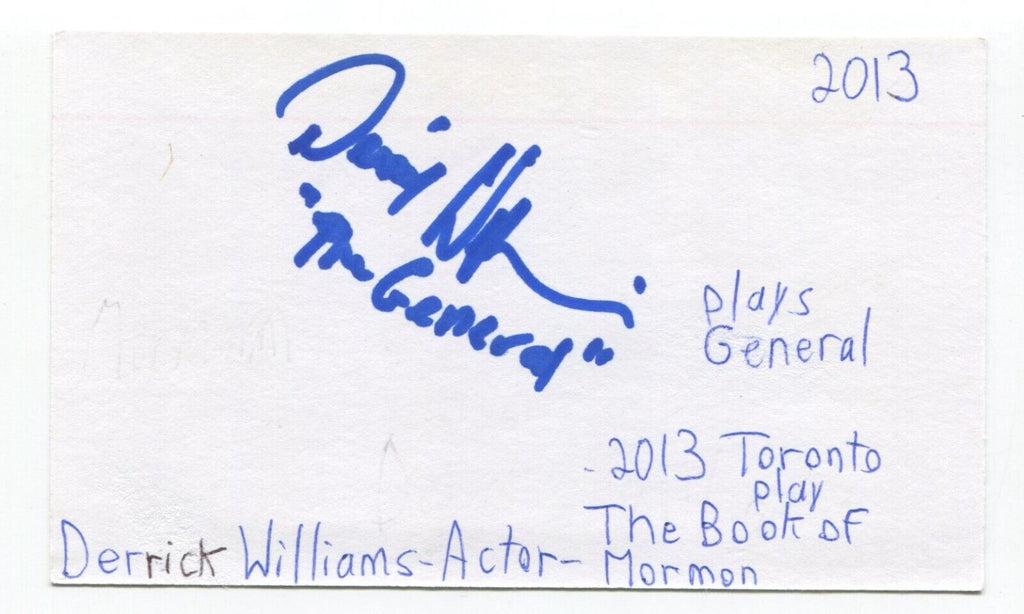 2013
"The
General"
plays
General
-2013 Toronto
play
The Book of
Derrick Williams-Actor- Mormon